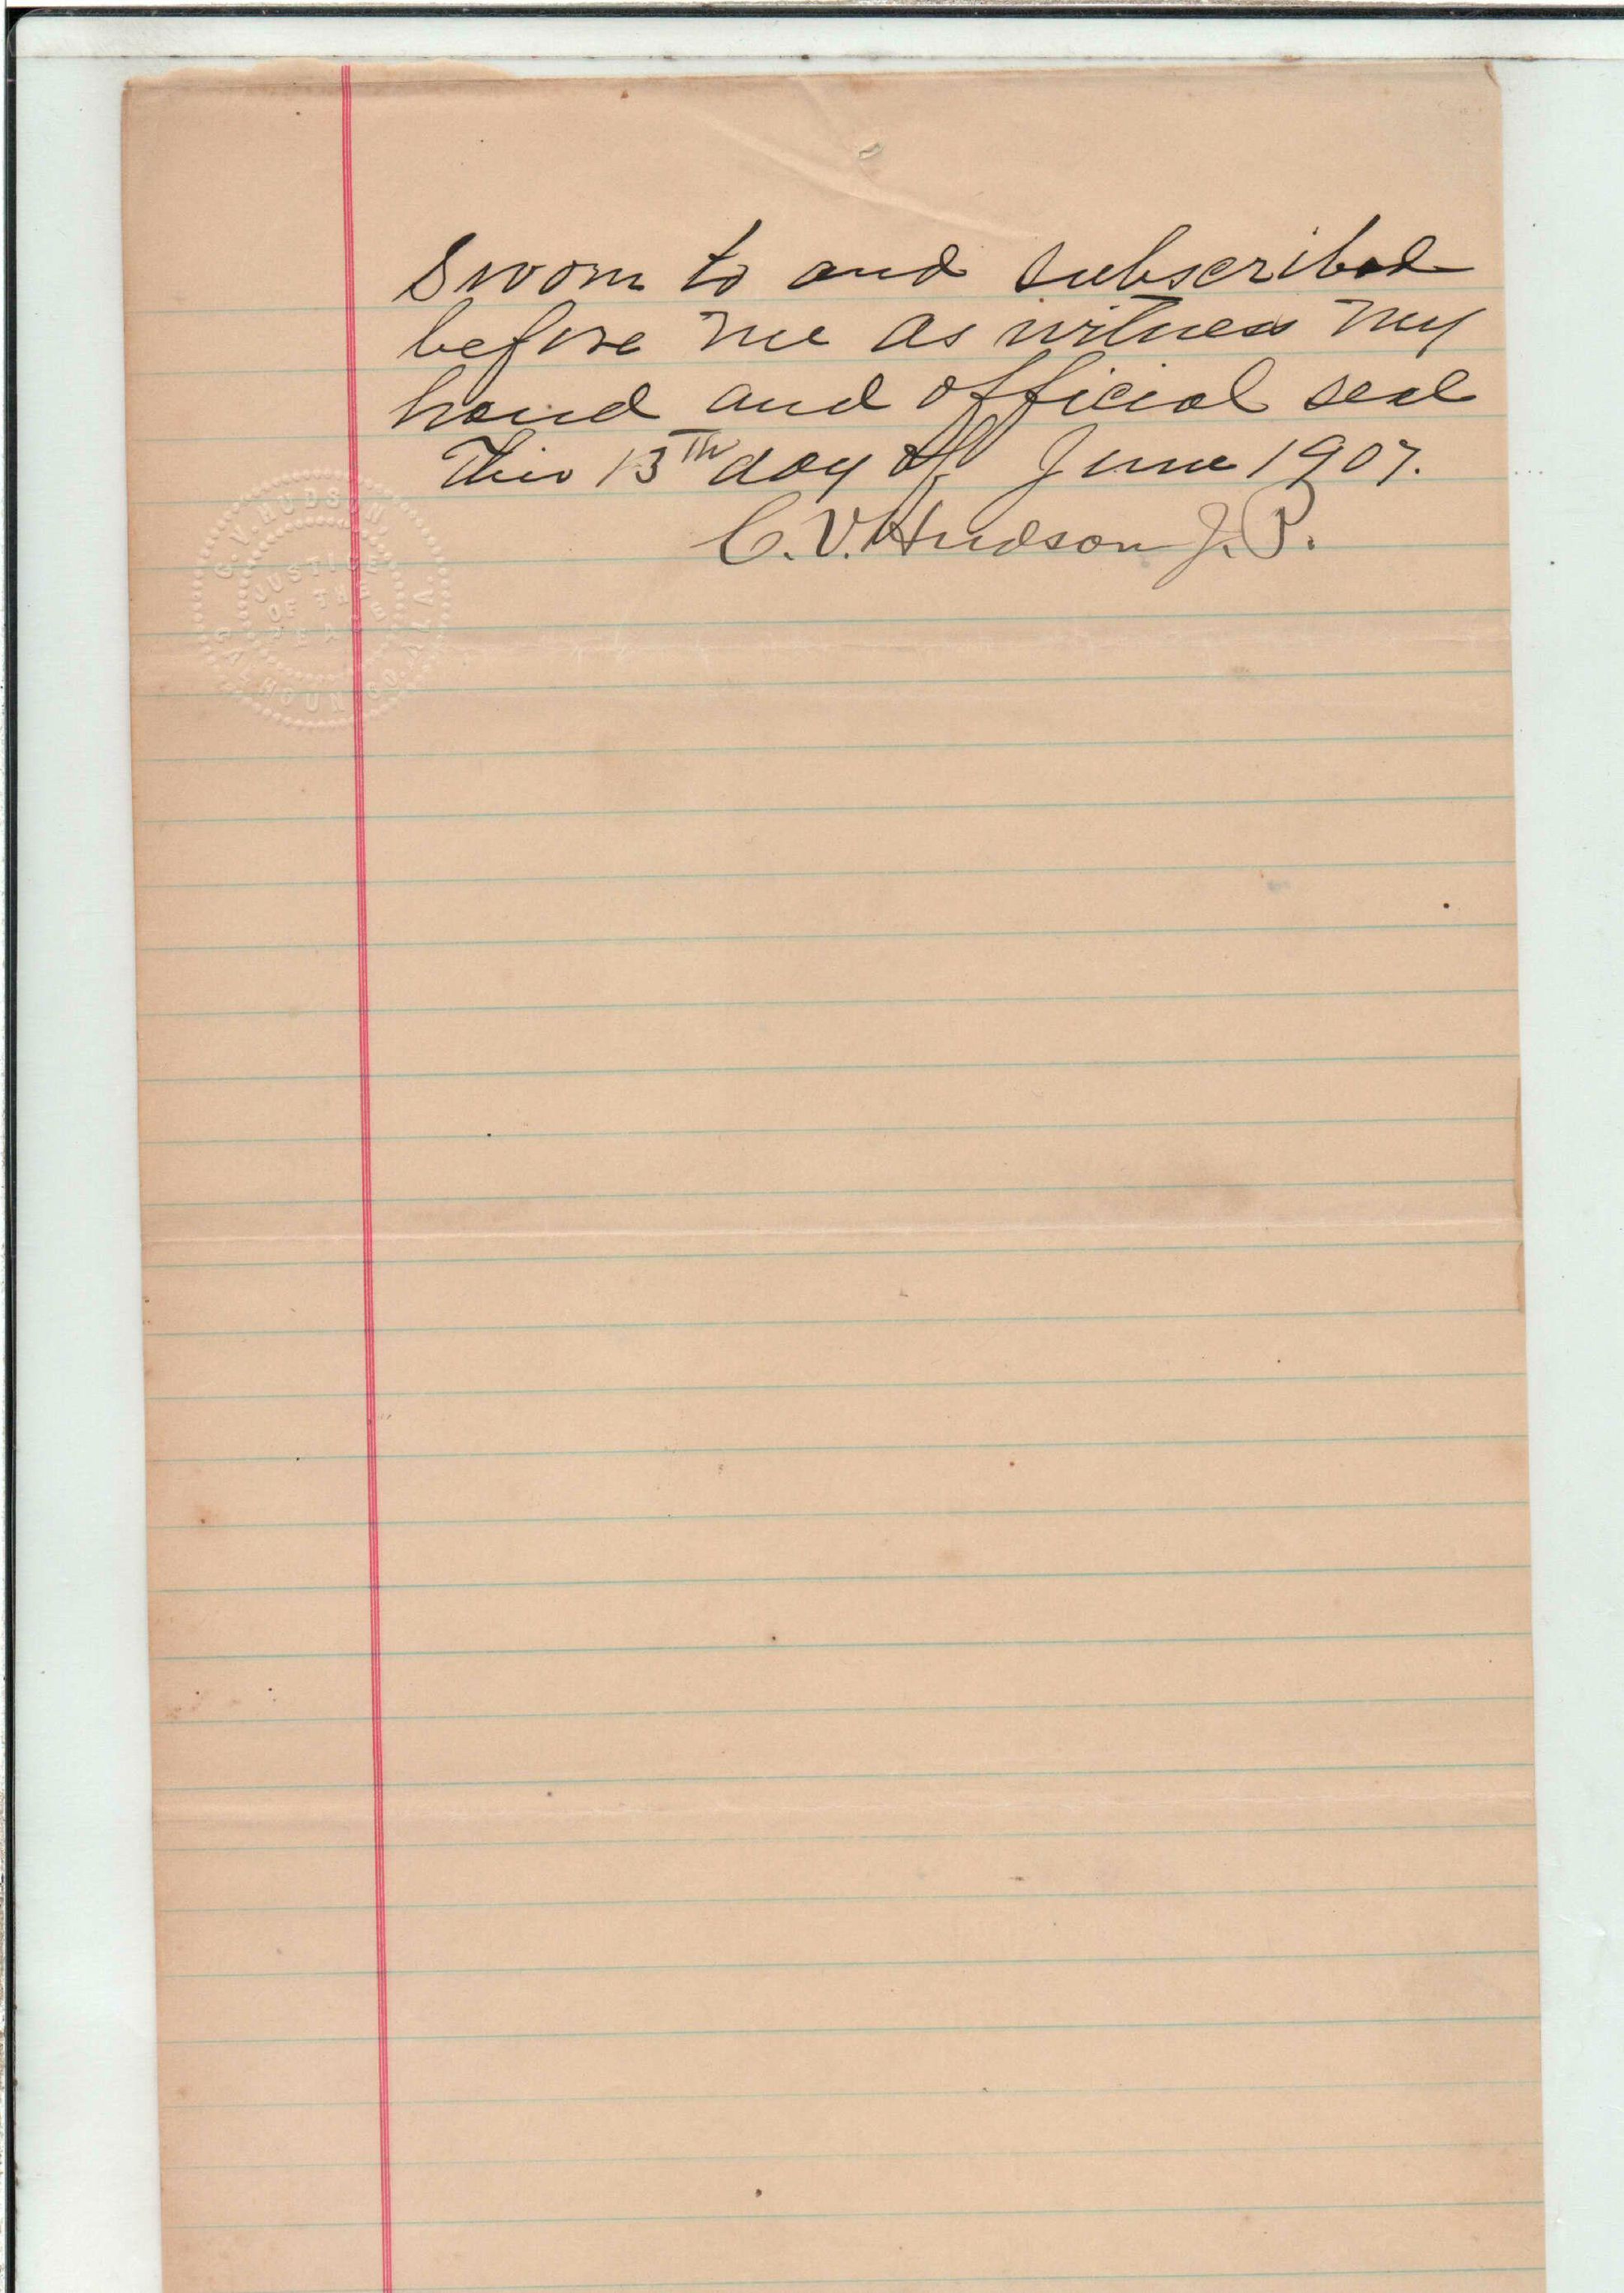 Sworn to and subscribed
before me as witness my
hand and official seal
This 13TH day of June 1907.
C. V. Hudson J. P.
C. V. HUDSON
JUSTICE
OF THE
CALHOUN CO. FLA.